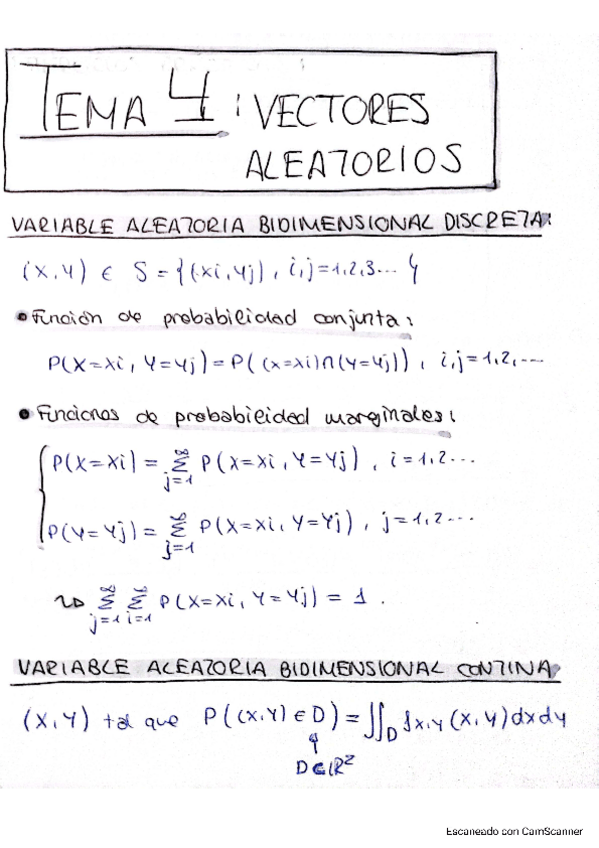 TEMA 4: VECTORES
ALEATORIOS
VARIABLE ALEATORIA BIDIMENSIONAL DISCRETA:
(X,Y) ∈ S = {(xi,yj), i,j=1,2,3... }
• Función de probabilidad conjunta:
P(X=xi, Y=yj) = P((x=xi)∩(Y=yj)), i,j=1,2,...
• Funciones de probabilidad marginales:
P(X=xi) = ∞Σj=1 P(X=xi, Y=yj), i=1,2...
P(Y=yj) = ∞Σj=1 P(X=xi, Y=yj), j=1,2...
↝ ∞Σj=1 ∞Σi=1 P(X=xi, Y=yj) = 1.
VARIABLE ALEATORIA BIDIMENSIONAL CONTINA
(X,Y) tal que P((X,Y) ∈ D) = ∬D fx,y (x,y) dx dy
D∈ℝ²
Escaneado con CamScanner